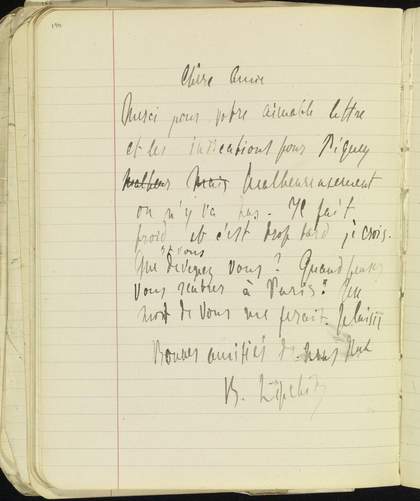 Chère amie
Merci pour votre aimable lettre
et les indications pour Piquey
mais Malheureusement
on n'y va pas. Il fait
froid et c'est trop tard je crois.
Que devenez vous? Quand pensez
vous
vous rentrer à Paris? Un
mot de vous me ferait plaisir
Bonnes amitiés de nous